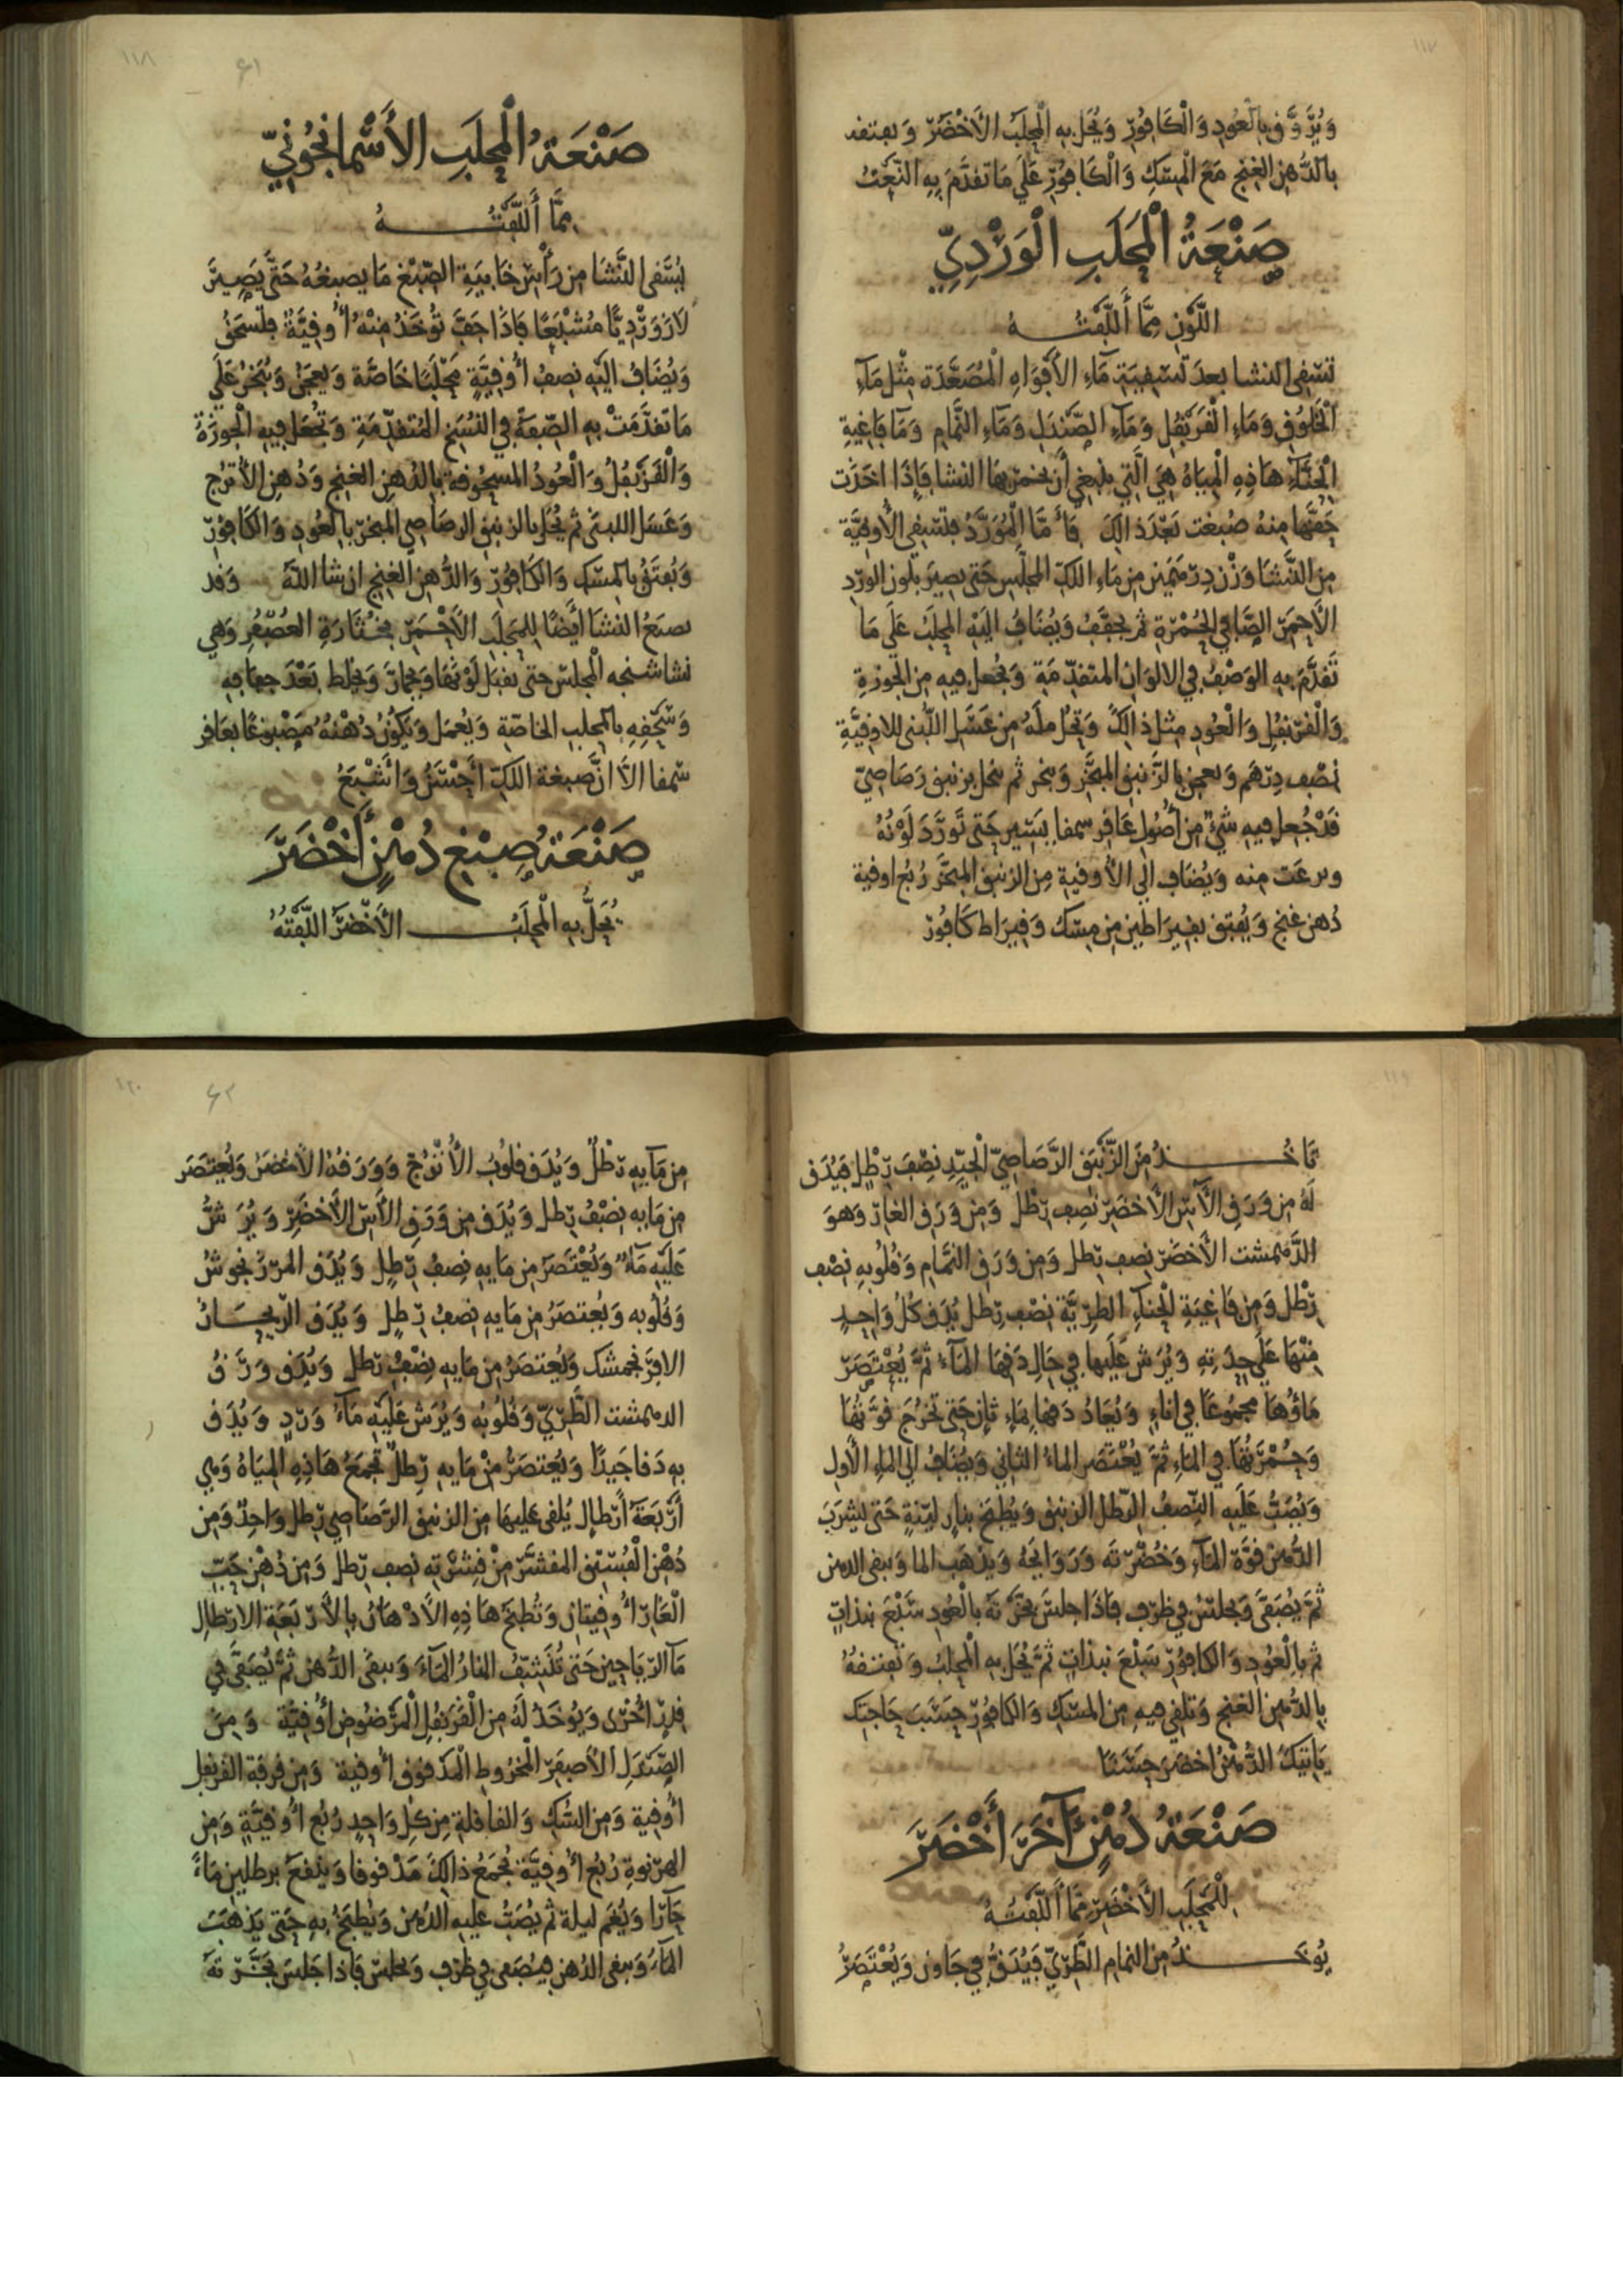 ١١٧
ويروق بالعود والكافور ويحل به المحلب الأخضر ويفتق
بالدهن الغنج مع المسك والكافور على ما تقدم به النعت
صنعة المحلب الوردي
اللون مما ألفته
تسقى النشا بعد تسقيته ماء الأفواه المصعدة مثل ماء
الخلوق وماء القرنفل وماء الصندل وماء النمام وماء فاغية
الحناء هاذه المياه هي التي ينبغي أن يخمر بها النشا فإذا اخذت
حقها منه صبغت بعد ذالك فأما المورد فتسقي الأوقية
من النشا وزن درهمين من ماء اللك المجلس حتى يصير بلون الورد
الأحمر الصافي الحمرة ثم يجفف ويضاف إليه المحلب على ما
تقدم به الوصف في الالوان المتقدمة ويجعل فيه من الجوزة
والقرنفل والعود مثل ذالك وتحل مله من عسل اللبنى للاوقية
نصف درهم ويعجن بالزنبق المبخر ويبخر ثم يحل بزنبق رصاصي
قد جعل فيه شيء من أصول عاقر سمفا يسير حتى تورد لونه
منه ويضاف الى الأوقية من الزنبق المبخر ربع اوقية
دهن غنج ويفتق بقيراطين من مسك وقيراط كافور
١١٨
٦١
صنعة المحلب الأسمانجوني
مما ألفته
ليسقى النشا من رأس خابية الصبغ ما يصبغه حتى يصير
لازورديا مشبعا فاذا جف تؤخذ منه أوقية فتسحق
ويضاف اليه نصف أوقية محلبا خاصة ويعجن ويبخر على
ما تقدمت به الصفة في النسخ المتقدمة وتجعل فيه الجوزة
والقرنفل والعود المسحوقة بالدهن الغنج ودهن الأترج
وعسل اللبنى ثم يحل بالزنبق الرصاصي المبخر بالعود والكافور
ويفتق بالمسك والكافور والدهن الغنج ان شا الله وقد
يصبغ النشا أيضا للمحلب الأحمر بخثارة العصفر وهي
نشاشنجه المجلس حتى يقبل لونها ويجاز ويخلط بعد جفافه
وسحقه بالمحلب الخاصة ويعمل ويكون دهنه مصبوغا بعاقر
سمفا الا ان صبغة اللك أحسن وأشبع
صنعة صبغ دهن أخضر
يحل به المحلب الأخضر اللفته
١١٩
تاخذ من الزنبق الرصاصي الجيد نصف رطل فيدق
له من ورق الآس الأخضر نصف رطل ومن ورق الغار وهو
الدهمشت الأخضر نصف رطل ومن ورق النمام وقلوبه نصف
رطل ومن فاغية الحناء الطرية نصف رطل يدق كل واحد
منها على حدته ويرش عليها في حال دقها الماء ثم يعتصر
ماؤها مجموعا في اناء ويعاد دقها بماء ثان حتى تخرج قوتها
وحمرتها في الماء ثم يعتصر الماء الثاني ويضاف الى الماء الأول
ويصب عليه النصف الرطل الزنبق ويطبخ بنار لينة حتى يشرب
الدهن قوة الماء وخضرته وروايحه ويذهب الما ويبقى الدهن
ثم يصفى ويجلس في ظرف فاذا جلس بخرته بالعود سبع نبذات
ثم بالعود والكافور سبع نبذات ثم يحل به المحلب وتفتقه
بالدهن الغنج وتلقي فيه من المسك والكافور حسب حاجتك
ياتيك الدهن اخضر حسنا
صنعة دهن آخر أخضر
للمحلب الأخضر مما ألفته
يوخذ من النمام الطري فيدق في هاون ويعتصر
١٢٠
٦٢
من مايه رطل ويدق قلوب الأترج وورقه الأخضر ويعتصر
من مايه نصف رطل ويدق من ورق الآس الأخضر ويرش
عليه ماء ويعتصر من مايه نصف رطل ويدق المرزنجوش
وقلوبه ويعتصر من مايه نصف رطل ويدق الريحان
الافرنجمشك ويعتصر من مايه نصف رطل ويدق ورق
الدهمشت الطري وقلوبه ويرش عليه ماء ورد ويدق
به دقا جيدا ويعتصر من مايه رطل تجمع هاذه المياه وهي
أربعة أرطال يلقى عليها من الزنبق الرصاصي رطل واحد ومن
دهن الفستق المقشر من قشرته نصف رطل ومن دهن حب
الغار أوقيتان وتطبخ هاذه الأدهان بالأربعة الارطال
ماء الرياحين حتى تنشف النار الماء ويبقى الدهن ثم يصفى في
قدر أخرى ويوخذ له من القرنفل المرضوض أوقية ومن
الصندل الأصفر المخروط المدقوق أوقية ومن قرفة القرنفل
أوقية ومن السك والقاقلة من كل واحد ربع أوقية ومن
الهرنوة ربع أوقية تجمع ذالك مدقوقا وينقع برطلين ماء
حارا ويغم ليلة ثم يصب عليه الدهن ويطبخ به حتى يذهب
الماء ويبقى الدهن فيصفى في ظرف ويجلس فاذا جلس بخرته